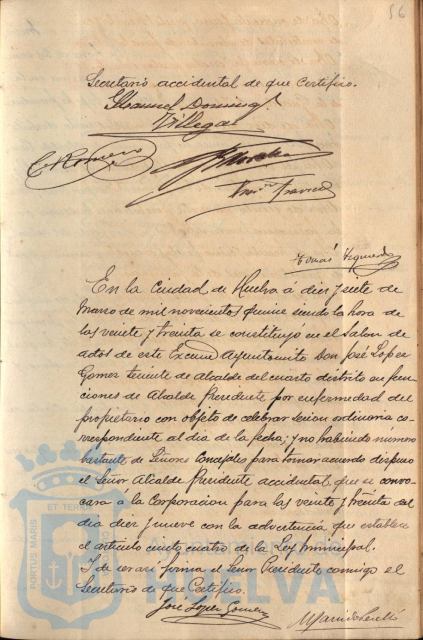 56
Secretario accidental de que Certifico.
Manuel Domingz.
Villegas
C Romero
Morales
Franco
Tomás Izquierdo
En la Ciudad de Huelva á diez y siete de
Marzo de mil novecientos quince siendo la hora de
las veinte y treinta se constituyó en el Salon de
actos de este Excmo Ayuntamto Don José Lopez
Gomez teniente de Alcalde del cuarto distrito en fun-
ciones de Alcalde Presidente por enfermedad del
propietario con objeto de celebrar sesion ordinaria co-
rrespondiente al dia de la fecha; y no habiendo número
bastante de Señores Concejales para tomar acuerdo dispuso
el Señor Alcalde Presidente accidental, que se convo-
cara á la Corporacion para las veinte y treinta del
dia diez y nueve con la advertencia que establece
el articulo ciento cuatro de la Ley municipal.
Y de ser así firma el Señor Presidente conmigo el
Secretario de que Certifico.
José Lopez Gomez
PORTUS MARIS ET TERRAE
Ayuntamiento de
HUELVA